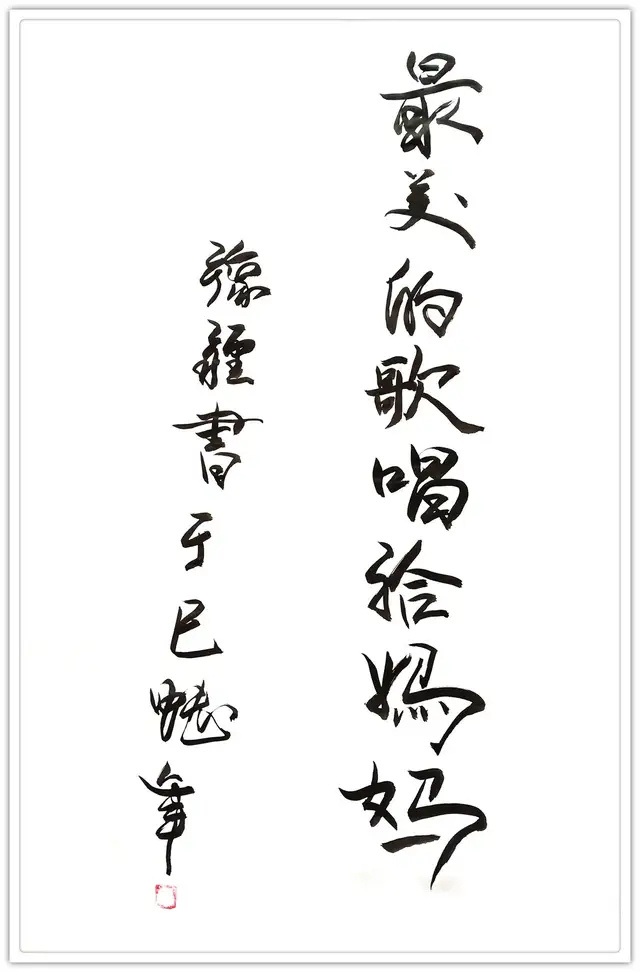 最美的歌唱给妈妈
豫疆書于巳蛇年